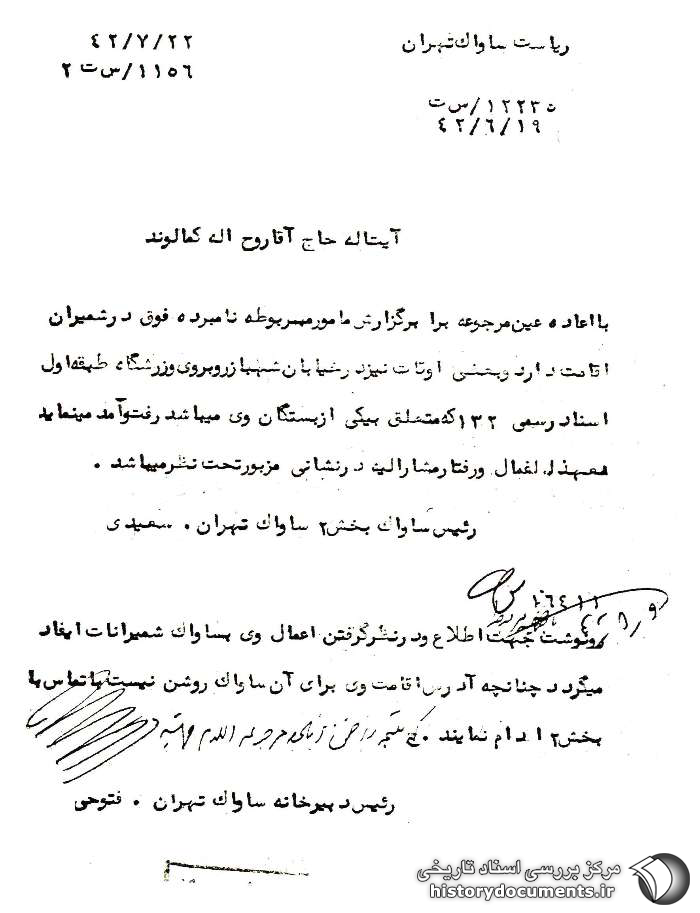 ریاست ساواک تهران
۴۲/۷/۲۲
۱۱۵۶/س ت ۲
۱۲۲۳۵/س ت
۴۲/۶/۱۹
آیتاله حاج آقا روح اله کمالوند
با اعاده عین مرجوعه برابر گزارش مامور مربوطه نامبرده فوق در شمیران
اقامت دارد و بعضی اوقات نیز در خیابان شهباز روبروی ورزشگاه طبقه اول
اسناد رسمی ۱۳۲ که متعلق بیکی از بستگان وی میباشد رفت و آمد مینماید
معهذا اعمال و رفتار مشارالیه در نشانی مزبور تحت نظر میباشد .
رئیس ساواک بخش ۲ ساواک تهران . سعیدی
۱۶۴۱۱
رونوشت جهت اطلاع و در نظر گرفتن اعمال وی بساواک شمیرانات ایفاد
میگردد چنانچه آدرس اقامت وی برای آن ساواک روشن نیست با تماس با
بخش ۲ اقدام نمایند .
رئیس دبیرخانه ساواک تهران . فتوحی
مرکز بررسی اسناد تاریخی
historydocuments.ir